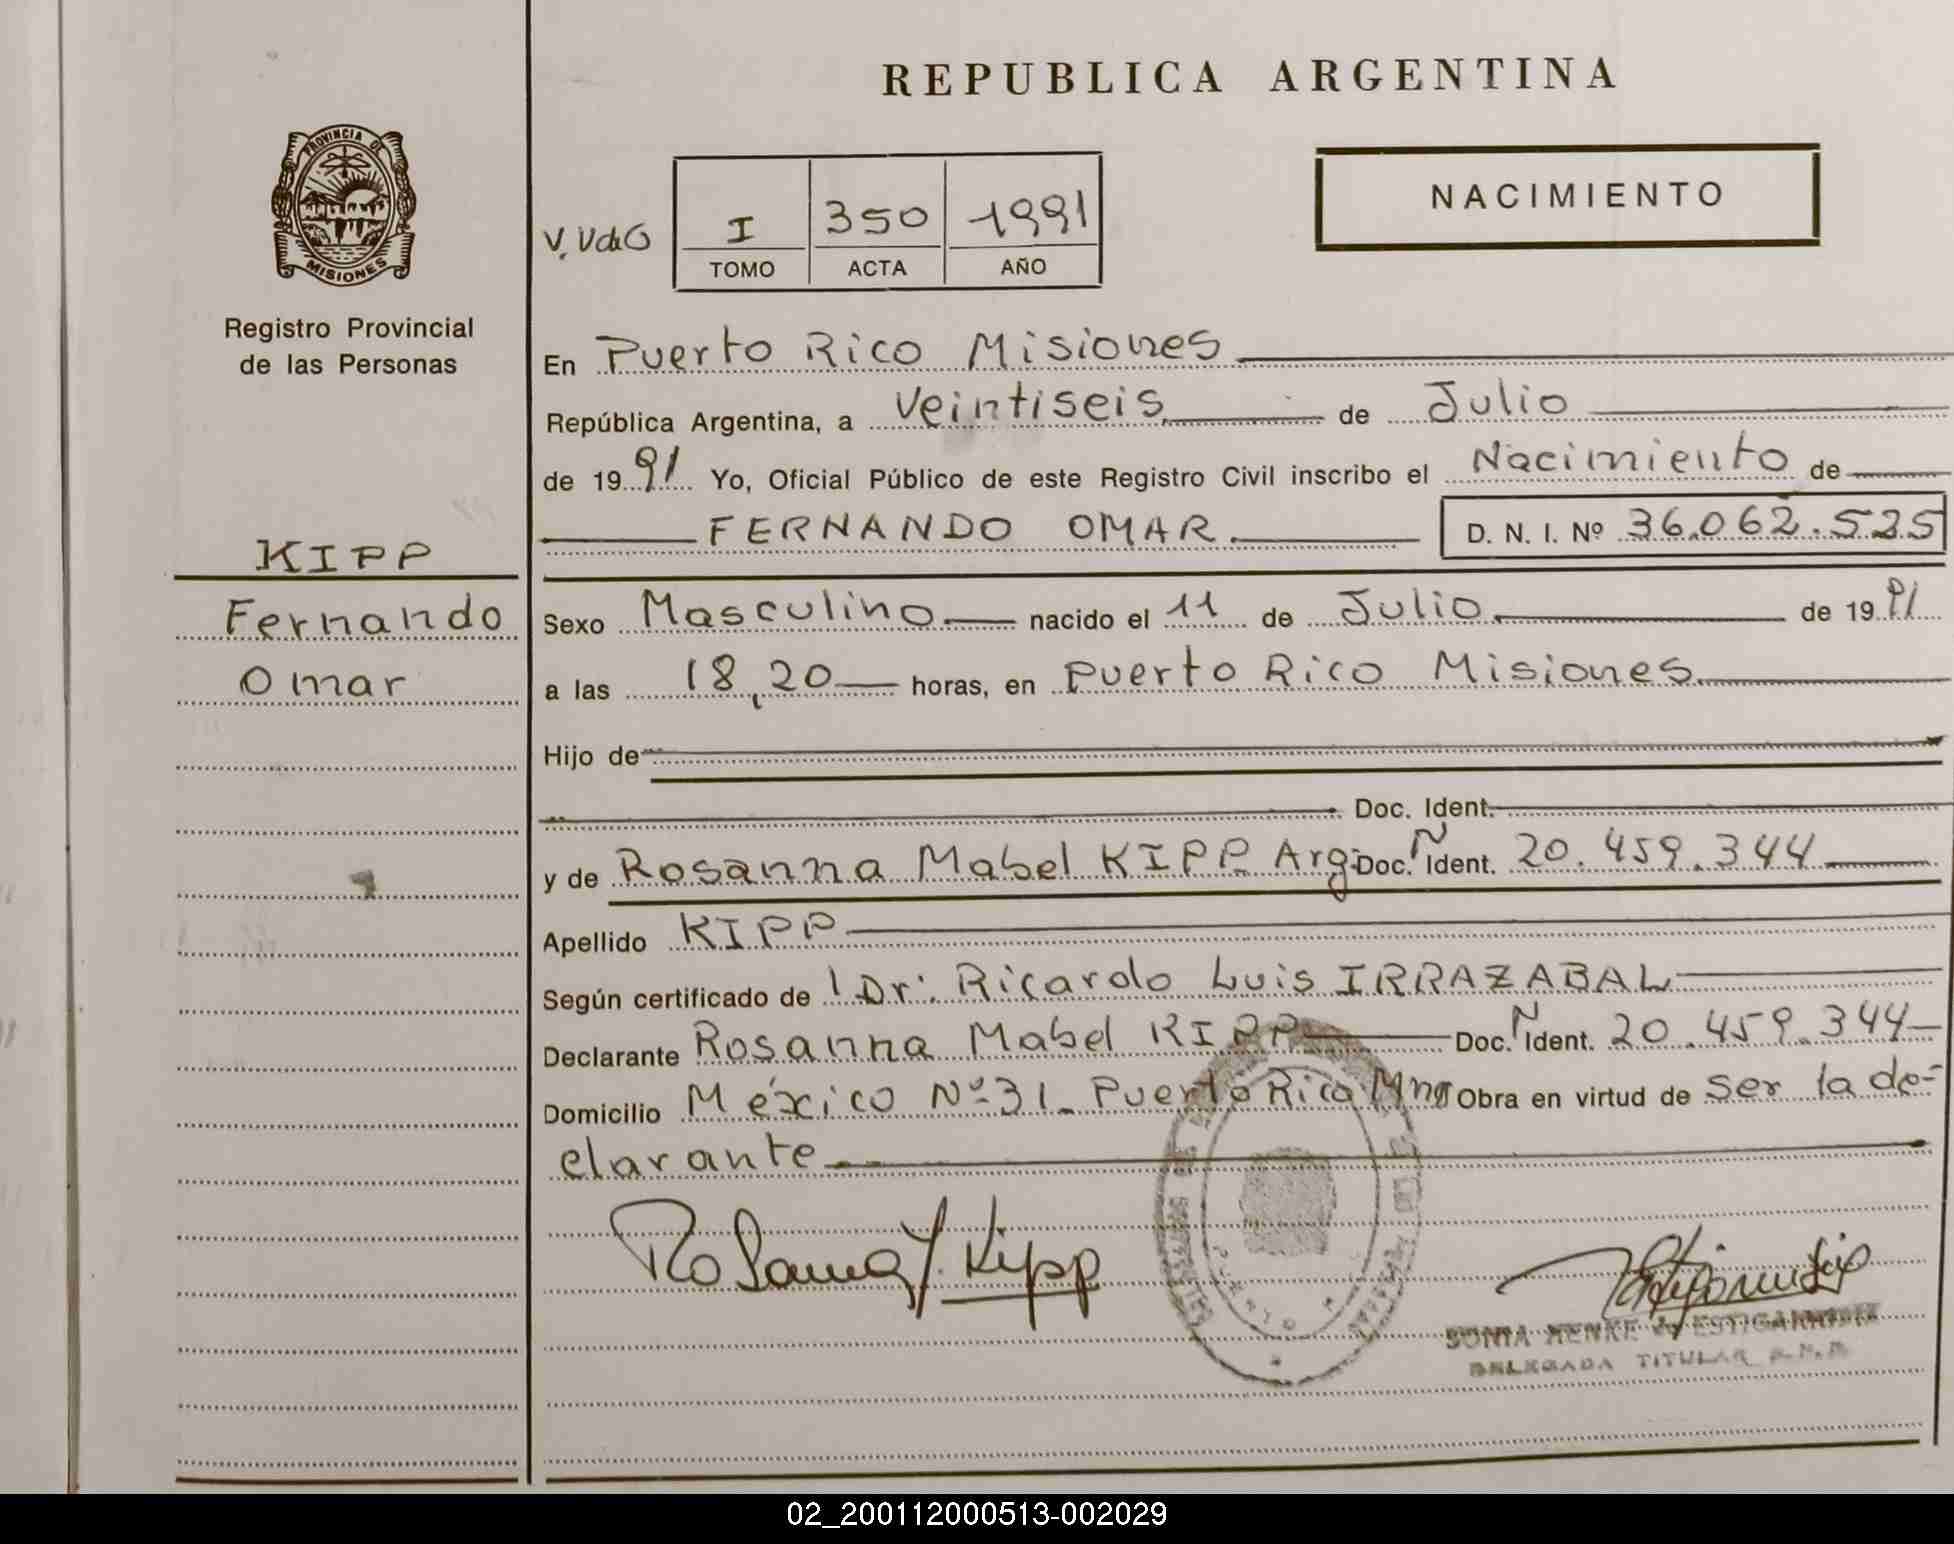 REPUBLICA ARGENTINA
PROVINCIA DE
MISIONES
Registro Provincial
de las Personas
NACIMIENTO
V. VdG
I 350 1991
TOMO ACTA AÑO
En Puerto Rico Misiones
República Argentina, a Veintiseis de Julio
de 1991 Yo, Oficial Público de este Registro Civil inscribo el Nacimiento de
FERNANDO OMAR D. N. I. Nº 36.062.525
KIPP
Fernando
Omar
Sexo Masculino nacido el 11 de Julio de 1991
a las 18,20 horas, en Puerto Rico Misiones
Hijo de
Doc. Ident.
y de Rosanna Mabel KIPP Arg. Doc. N Ident. 20.459.344
Apellido KIPP
Según certificado de Dr. Ricardo Luis IRRAZABAL
Declarante Rosanna Mabel KIPP Doc. N Ident. 20.459.344
Domicilio México Nº 31 Puerto Rico Mnes Obra en virtud de ser la de-
clarante
Rosanna Kipp
SONIA HENKE de ESTIGARRIBIA
DELEGADA TITULAR
02_200112000513-002029